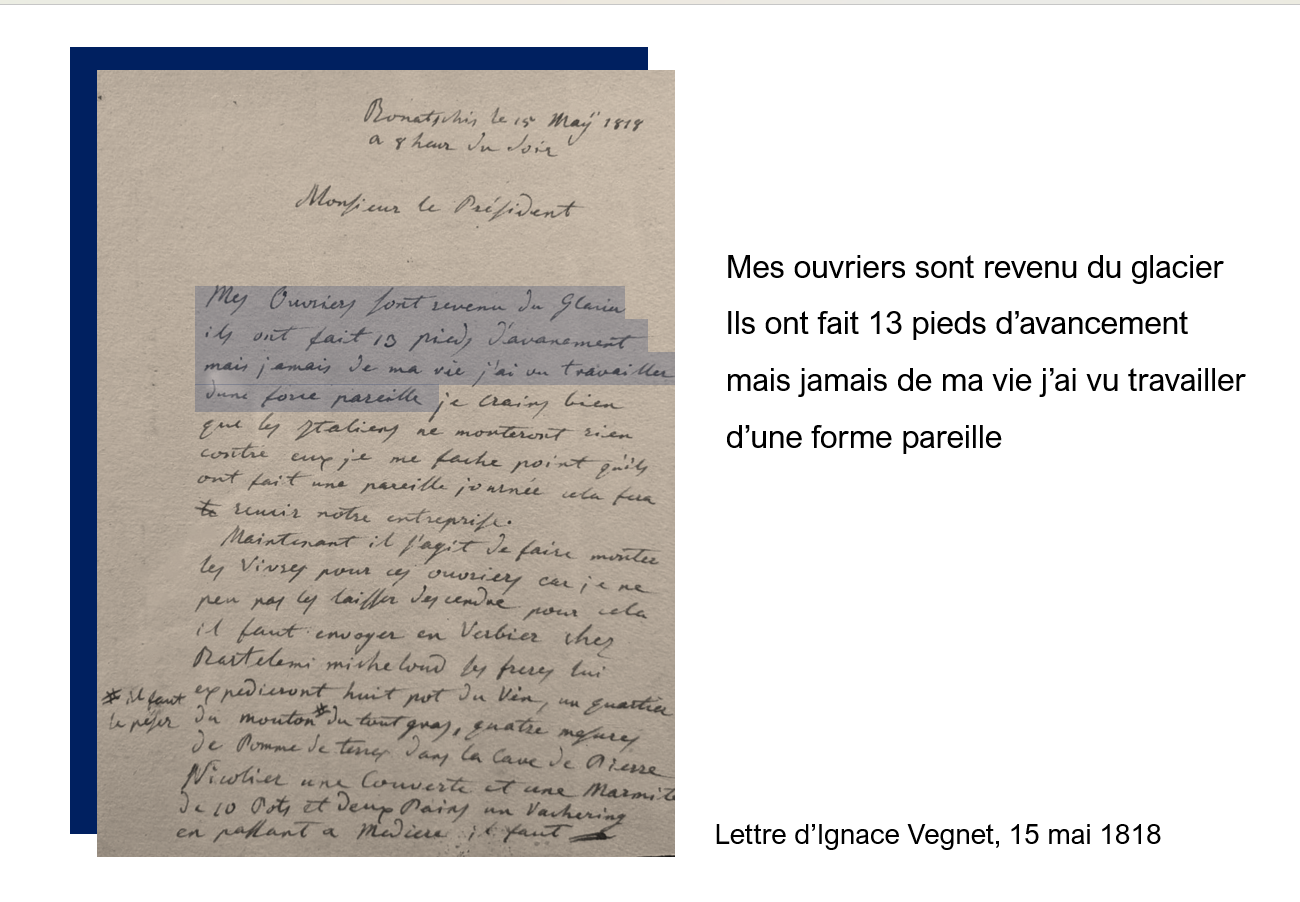 Bonatschis le 15 Maÿ 1818
a 8 heur du soir
Monsieur le Président
Mes Ouvriers sont revenu du Glacier
ils ont fait 13 pieds d'avancement
mais jamais de ma vie j'ai vu travailler
dune force pareille je crains bien
que les Italiens ne monteront rien
contre eux je me fache point qu'ils
ont fait une pareille journée cela fera
reucir notre entreprise.
Maintenant il s'agit de faire monter
les Vivres pour ces ouvriers car je ne
peu pas les laisser descendre pour cela
il faut envoyer en Verbier chez
Bartelemi micheloud les freres lui
expedieront huit pot du Vin, un quartier
# il faut
le peser
du mouton # du tout gras, quatre mesures
de Pomme de terres dans la Cave de Pierre
Nicolier une Couverte et une Marmite
de 10 Pots et deux Pains un Vachering
en passant a Mediere il faut
Mes ouvriers sont revenu du glacier
Ils ont fait 13 pieds d’avancement
mais jamais de ma vie j’ai vu travailler
d’une forme pareille
Lettre d’Ignace Vegnet, 15 mai 1818